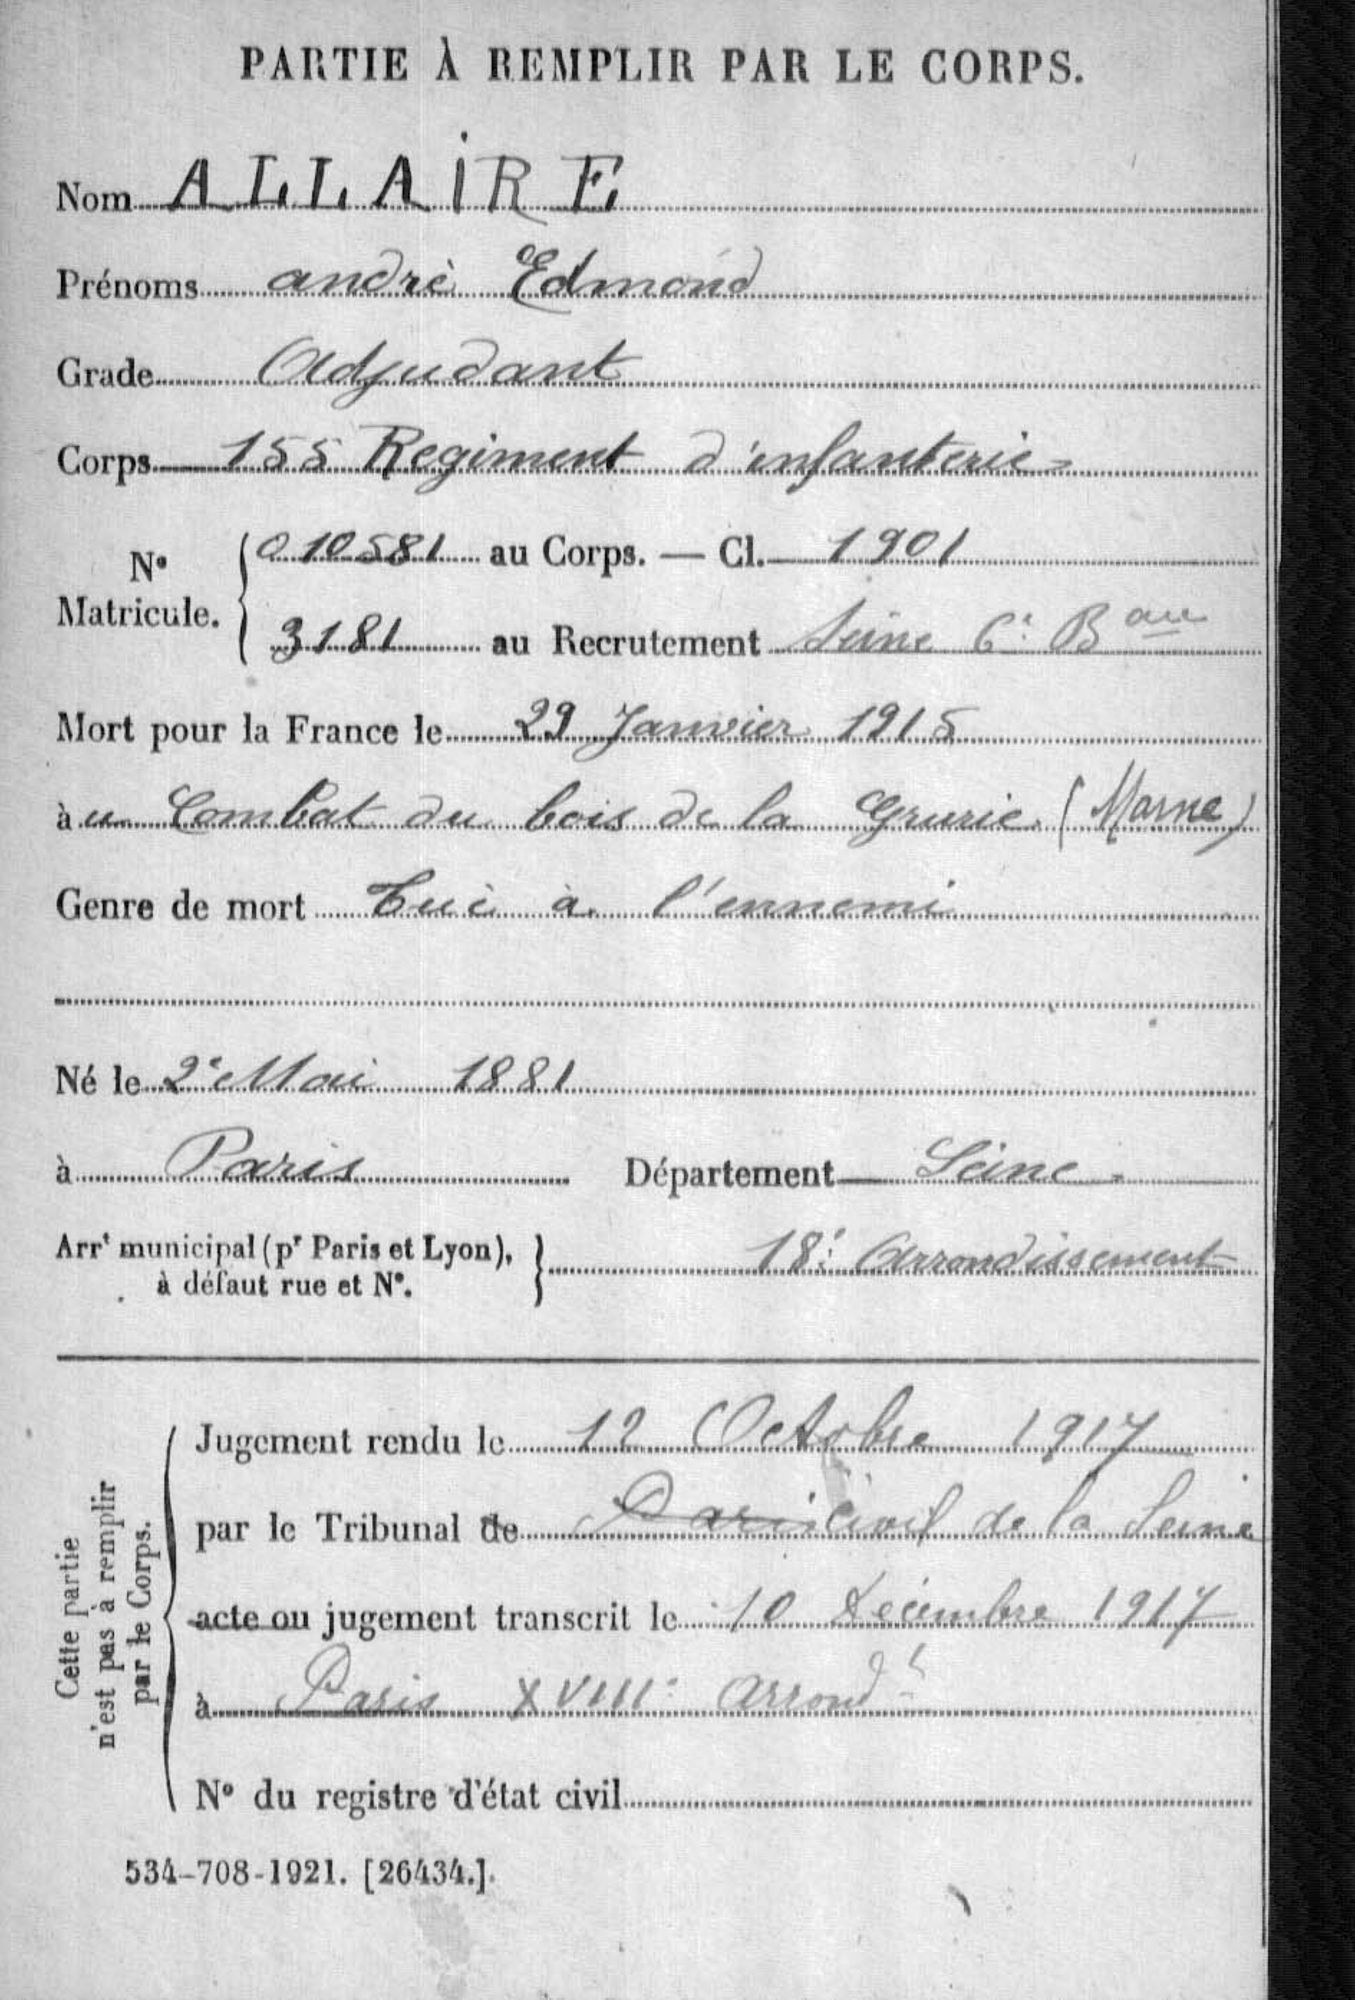 PARTIE À REMPLIR PAR LE CORPS.
Nom ALLAIRE
Prénoms andré Edmond
Grade Adjudant
Corps 155 Regiment d'infanterie
N° Matricule. 010581 au Corps. — Cl. 1901
3181 au Recrutement Seine 6e Bau
Mort pour la France le 29 Janvier 1915
à u Combat du bois de la Grurie (Marne)
Genre de mort Tué à l'ennemi
Né le 2e Mai 1881
à Paris Département Seine
Arrt municipal (pr Paris et Lyon), à défaut rue et N°. 18e Arrondissement
Cette partie n'est pas à remplir par le Corps.
Jugement rendu le 12 Octobre 1917
par le Tribunal de Paris Civil de la Seine
acte ou jugement transcrit le 10 Décembre 1917
à Paris XVIIIe arrondt
N° du registre d'état civil
534-708-1921. [26434.].